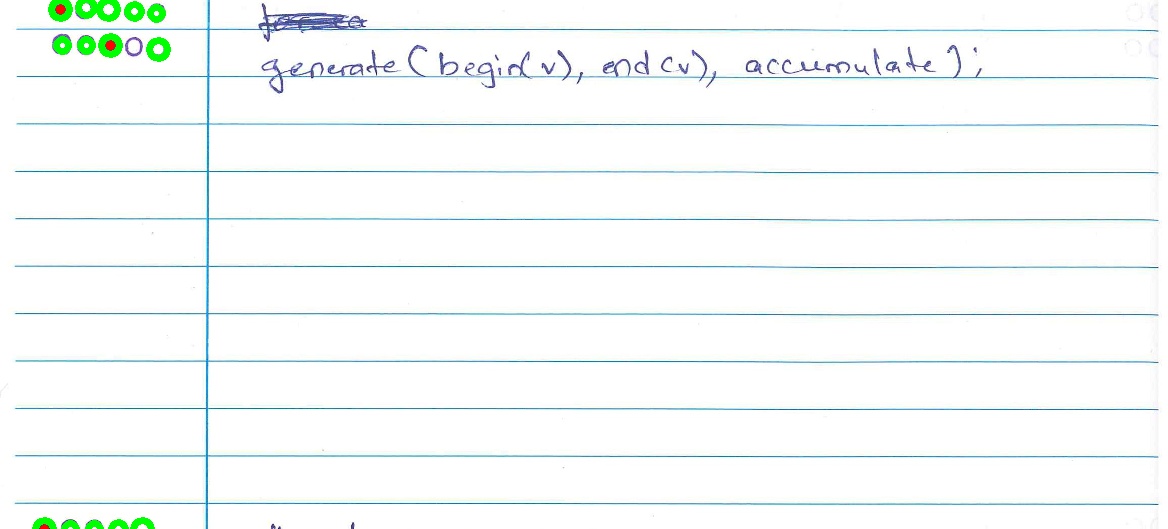 generate(begin(v), end(v), accumulate);